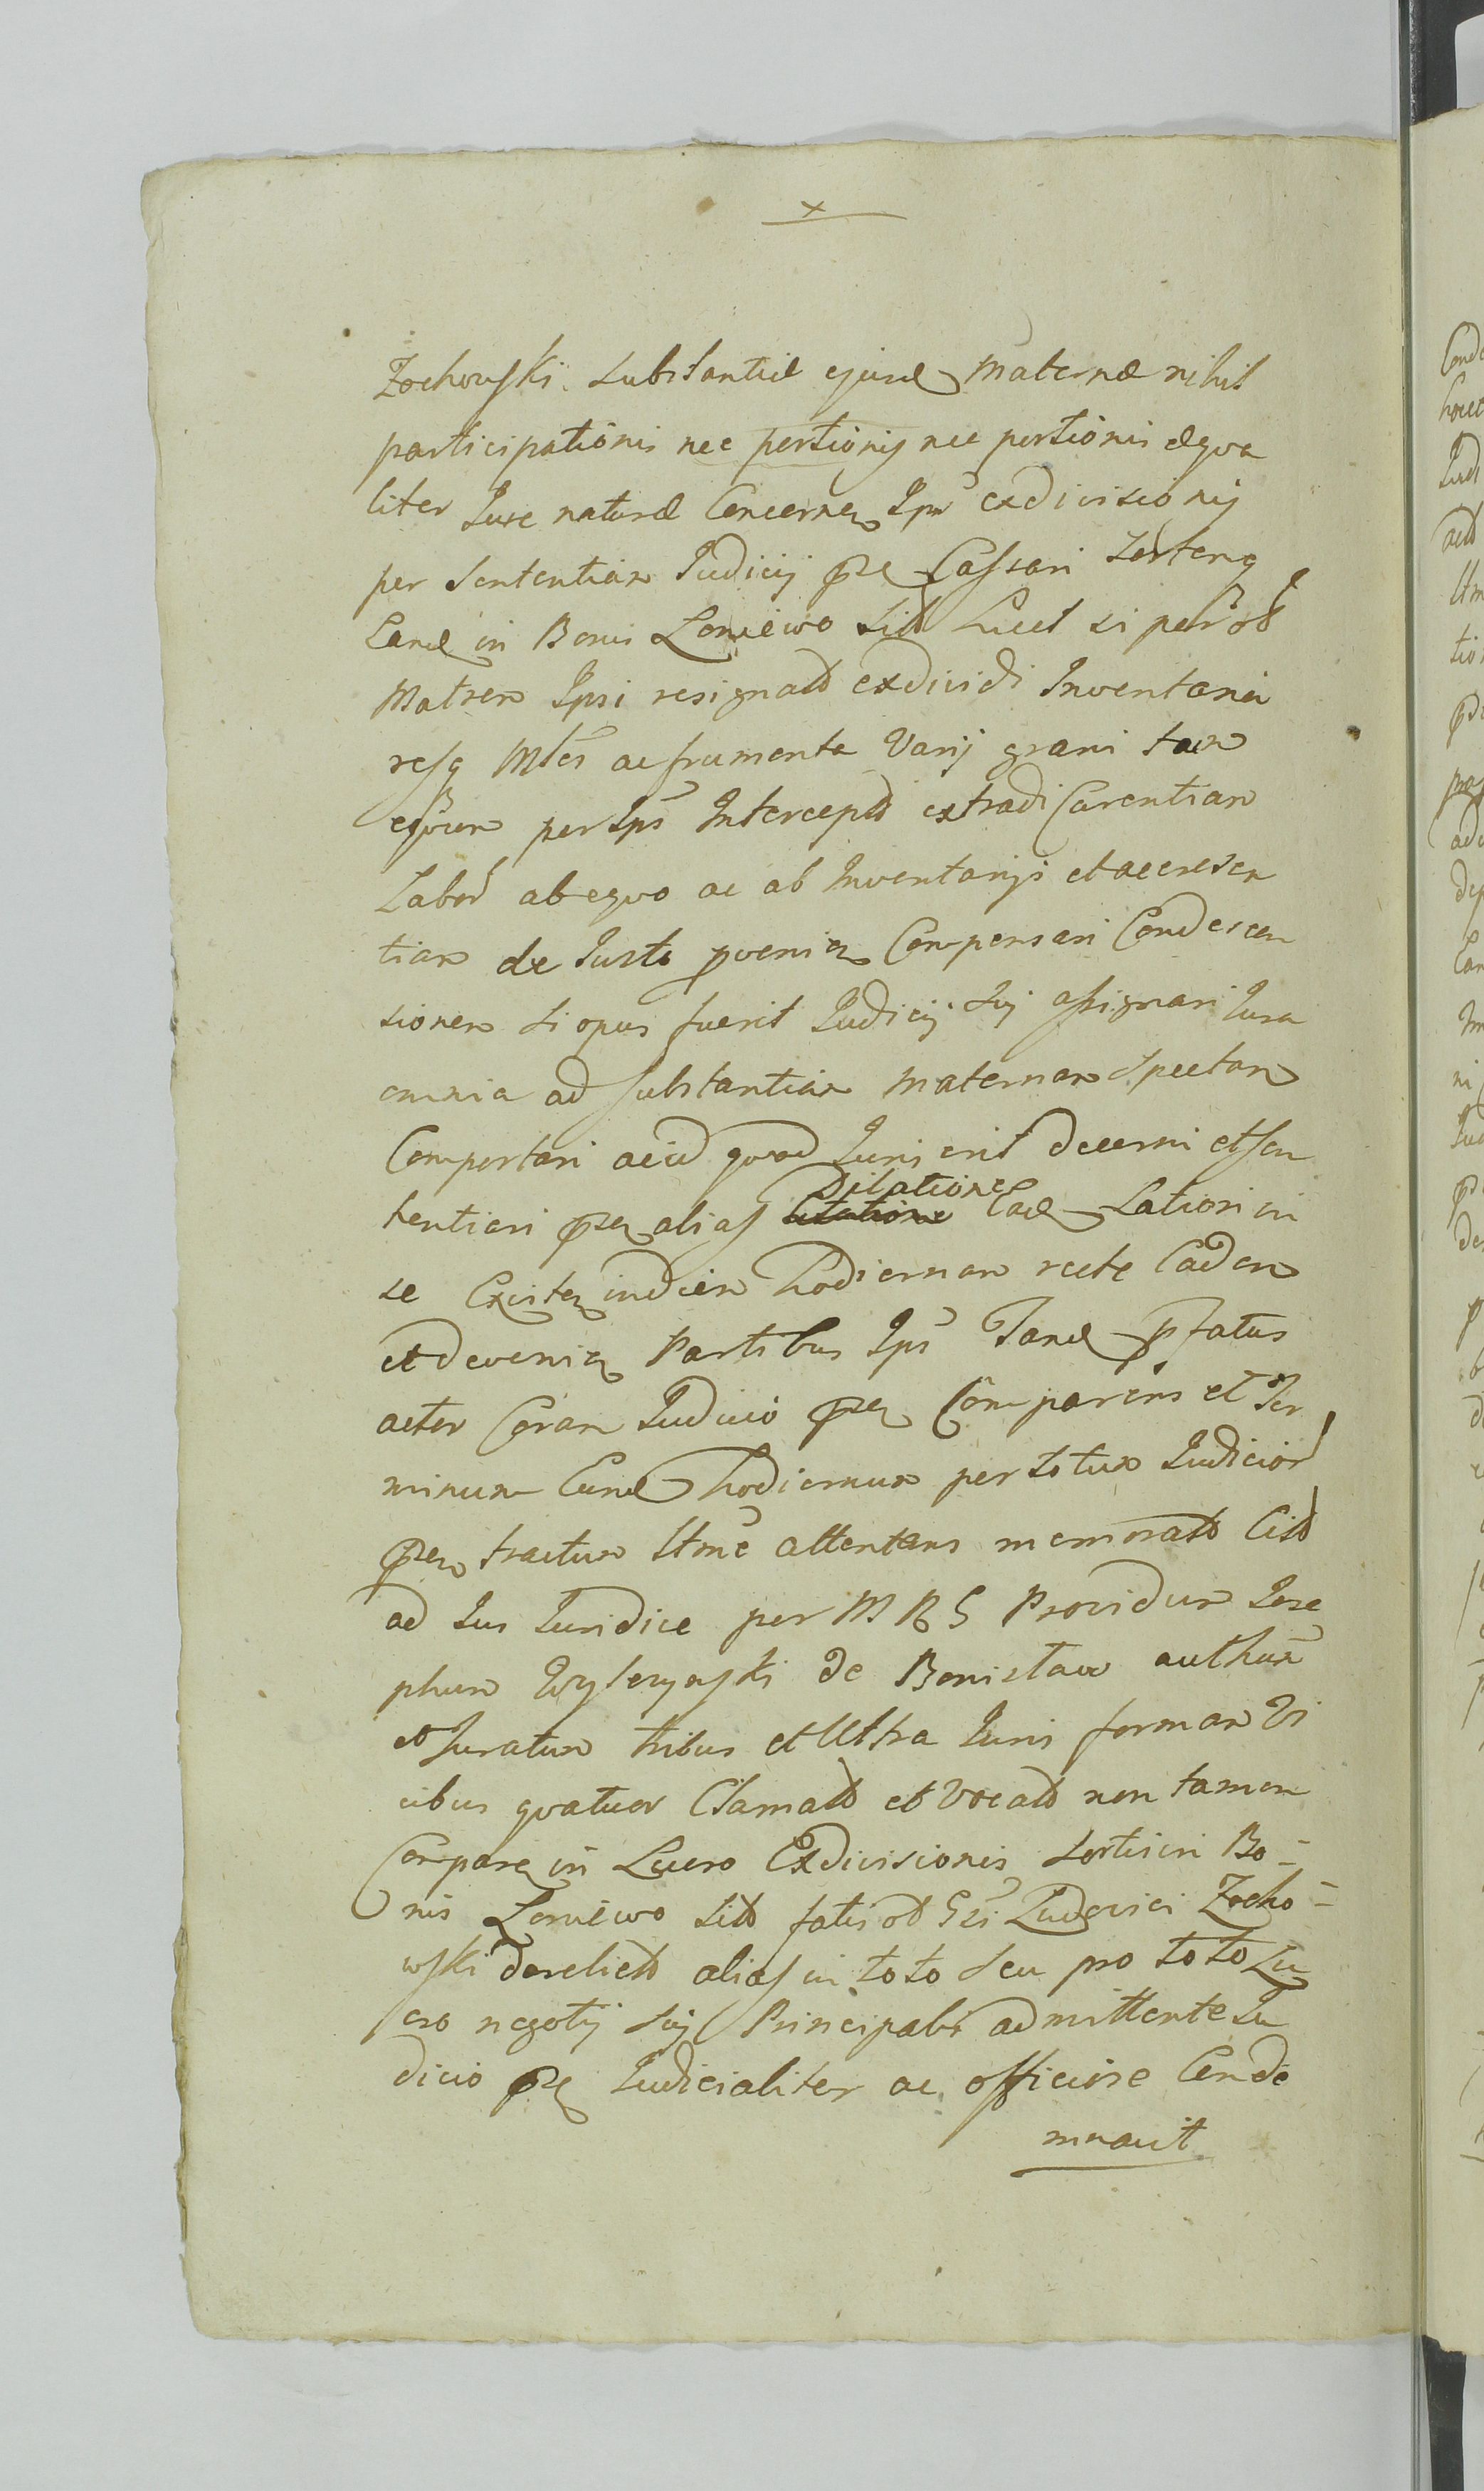 x
Zochowski substantiæ ejusd Maternæ nihil
participationis nec portionis nec portionis æqva
liter Jure naturæ Concernen Ipm exdivisionis
per Sententiam Judicij pn Cassari Sortemq
Eand in Bonis Loniewo sitt Licet si per
Matrem Ipsi resignatt exdividi Inventaria
resq Mles ac frumenta Varij grani tam
eqvum per Ips Intercept extradi Carentiam
Labor ab eqvo ac ab Inventarijs et accrescen
tiam de Justo pvenien Compensari Condescen
sionem si opus fuerit Judicij Sui assignari Jura
omnia ad substantiam maternam Spectan
Comportari ac id qvod Juris erit decerni et sen
tentiari pn alias Dilatione Ead Latiori in
se Existen in diem hodiernam recte Caden
et devenien Partibus Ips Tand pfatus
actor Coram Judicio pn Comparens et Ter
minum Eund hodiernum per totum Judicior
pn tractum ltme attentans memoratt Citt
ad Jus Juridice per M R G Providum Jose
phum de Bonislaw auth
et Juratum tribus et Ultra Juris formam Vi
cibus qvatuor Clamatt et Vocatt non tamen
Compar in Lucro Exdivisionis Sortis in Bo-
nis Loniewo sitt fatis Gsi Ludovici Zocho-
wski derelict alias in toto seu pro toto Lu
cro negotij sui Principalis admittente Ju
dicio pn Judicialiter ac officiose Conde
mnavit